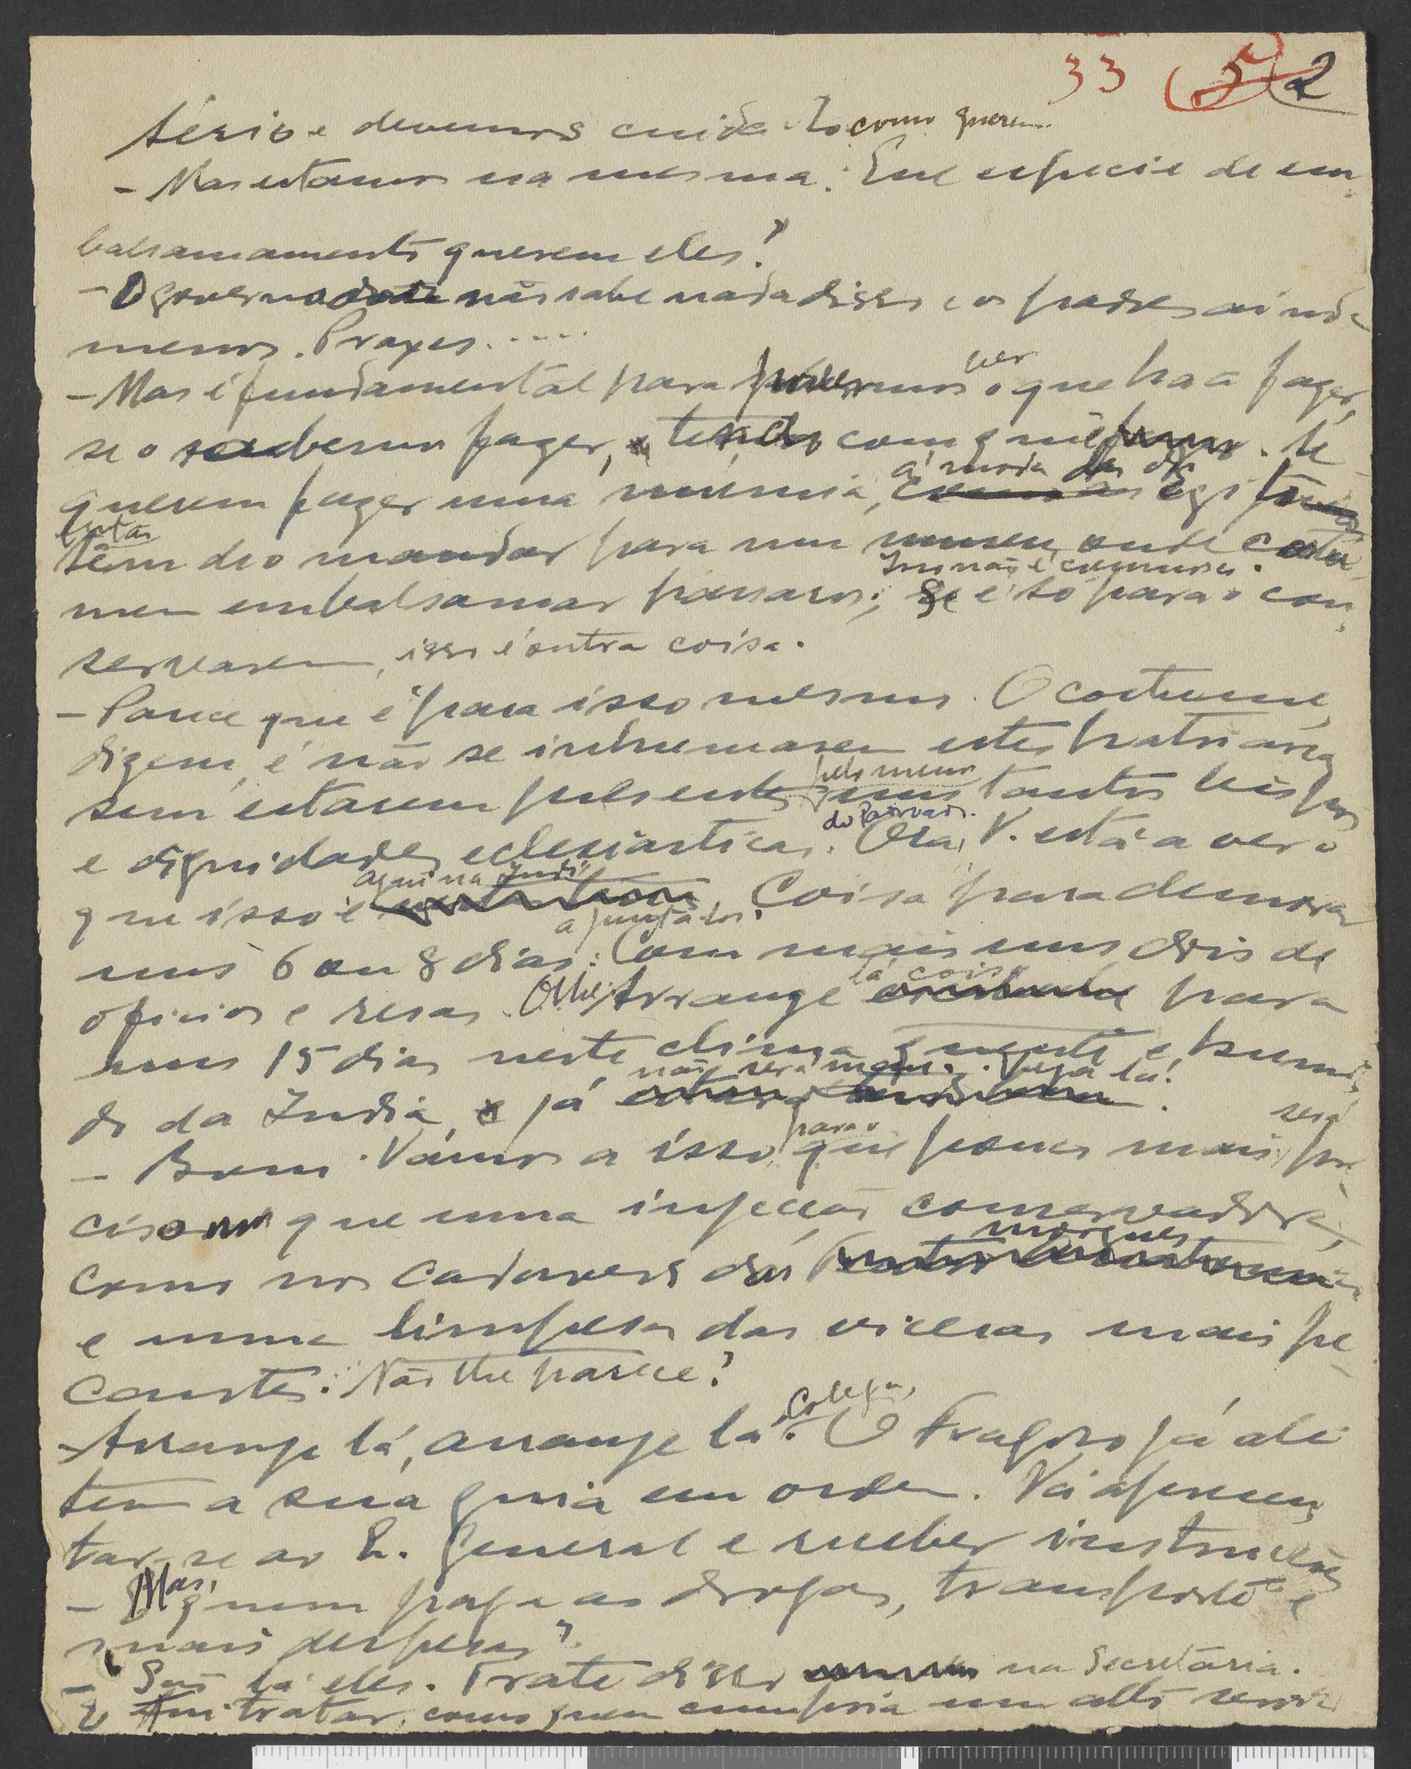 33 5 2
sério e devemos cuida-lo como querem.
- Mas estamos na mesma: Que especie de em-
balsamamento querem eles?
- O governo não sabe nada disso e os padres ainda
menos. Praxes.....
- Mas é fundamental para vermos o que ha a fazer,
se o sabemos fazer, e tendo com quê. Se
querem fazer uma múmia, á moda dos Egi
tên de o mandar para um museu onde costu-
Isso não é comnosco.
mem embalsamar passaros; Se é só para o con-
servarem, isso é outra coisa.
- Parece que é para isso mesmo. O costume,
dizem, é não se inhumarem estes patriarcas
sem estarem presentes pelo menos uns tantos bispos
e dignidades eclesiásticas do Padroado. Ora, V. está a ver o
que isso é aqui na India. Coisa para demorar
uns 6 ou 8 dias a junta-los: Com mais uns dois de
oficios e resas. Olhe, Arrange lá coisa para
uns 15 dias neste clima quente e humi-
do da India, já não será mau. Veja lá.
- Bom. Vamos a isso, para o que pouco mais será pre-
ciso que uma injecção conservadora,
como nos cadaveres das morgues
e uma limpesa das viceras mais pe-
cantes. Não lhe parece?
- Arranje lá, arranje lá, Colega. O Fragoso já ali
tem a sua guia em ordem. Vá apresen-
tar-se ao Q. General e receber instruções
- Mas, quem paga as drogas, transporte e
mais despesas?
- São lá eles. Trate disso na Secretária.
E fui tratar, como quem cumpria um alto servi